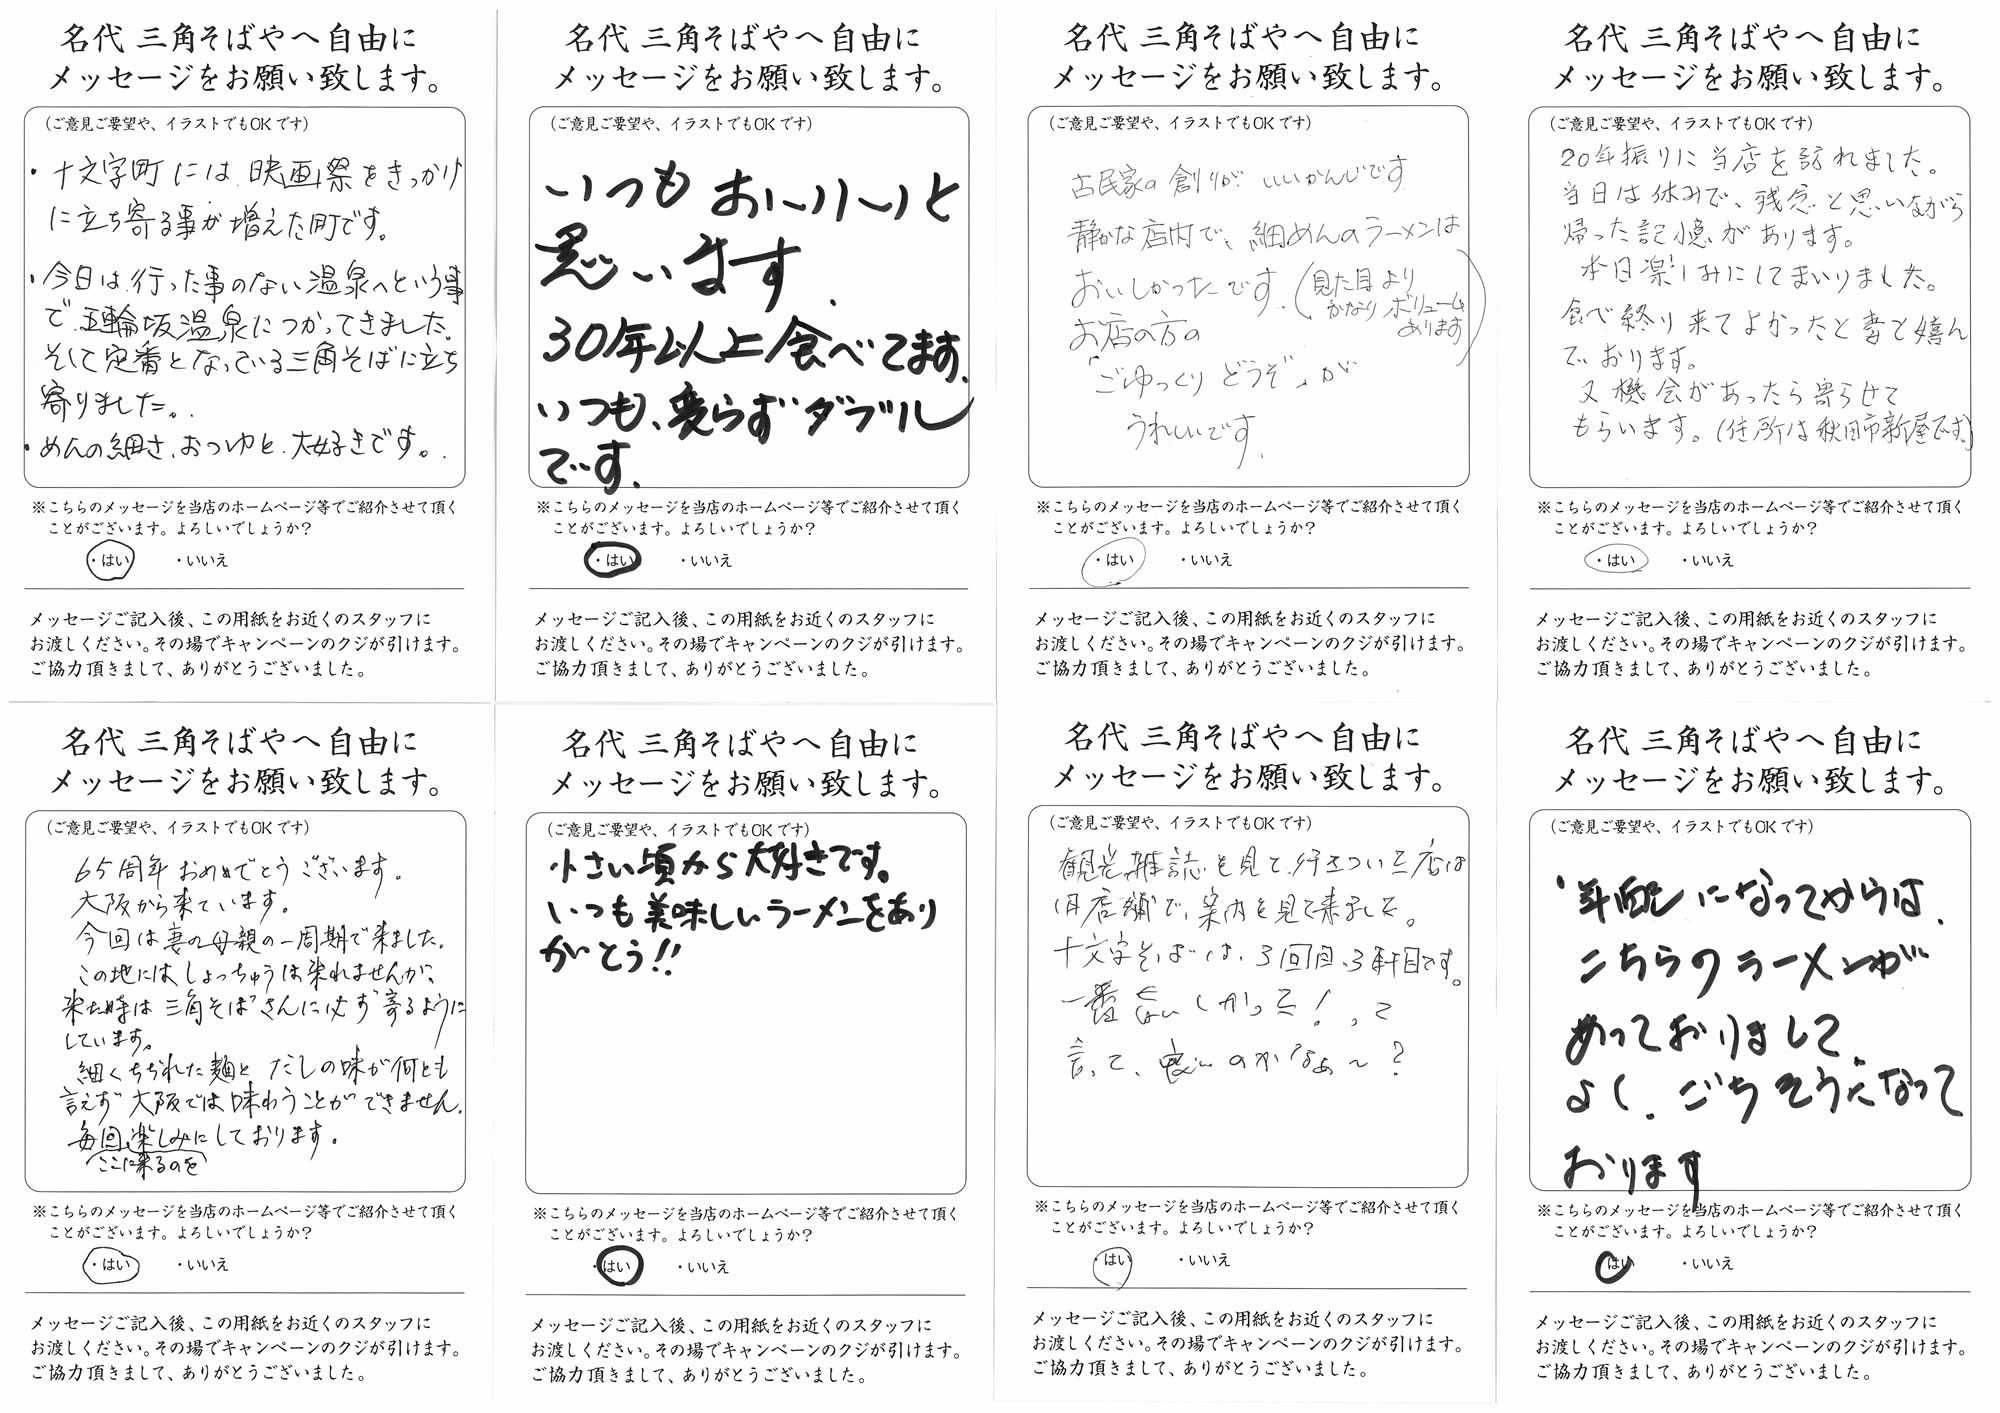 名代 三角そばやへ自由に
メッセージをお願い致します。
(ご意見ご要望や、イラストでもOKです)
・十文字町には映画祭をきっかけ
に立ち寄る事が増えた町です。
・今日は行った事のない温泉へという事
で五輪坂温泉につかってきました。
そして定番となっている三角そばに立ち
寄りました。
・めんの細さ、おつゆと、大好きです。
※こちらのメッセージを当店のホームページ等でご紹介させて頂く
ことがございます。よろしいでしょうか?
・はい ・いいえ
メッセージご記入後、この用紙をお近くのスタッフに
お渡しください。その場でキャンペーンのクジが引けます。
ご協力頂きまして、ありがとうございました。
名代 三角そばやへ自由に
メッセージをお願い致します。
(ご意見ご要望や、イラストでもOKです)
いつもおいしいと
思います.
30年以上食べてます.
いつも、変らずダブル
です.
※こちらのメッセージを当店のホームページ等でご紹介させて頂く
ことがございます。よろしいでしょうか?
・はい ・いいえ
メッセージご記入後、この用紙をお近くのスタッフに
お渡しください。その場でキャンペーンのクジが引けます。
ご協力頂きまして、ありがとうございました。
名代 三角そばやへ自由に
メッセージをお願い致します。
(ご意見ご要望や、イラストでもOKです)
古民家の創りがいいかんじです
静かな店内で、細めんのラーメンは
おいしかったです.(見た目より
かなりボリューム
あります)
お店の方の
「ごゆっくりどうぞ」が
うれしいです.
※こちらのメッセージを当店のホームページ等でご紹介させて頂く
ことがございます。よろしいでしょうか?
・はい ・いいえ
メッセージご記入後、この用紙をお近くのスタッフに
お渡しください。その場でキャンペーンのクジが引けます。
ご協力頂きまして、ありがとうございました。
名代 三角そばやへ自由に
メッセージをお願い致します。
(ご意見ご要望や、イラストでもOKです)
20年振りに当店を訪れました。
当日は休みで、残念と思いながら
帰った記憶があります。
本日楽しみにしてまいりました。
食べ終り来てよかったと妻と嬉んで
おります。
又機会があったら寄らせて
もらいます。(住所は秋田市新屋です)
※こちらのメッセージを当店のホームページ等でご紹介させて頂く
ことがございます。よろしいでしょうか?
・はい ・いいえ
メッセージご記入後、この用紙をお近くのスタッフに
お渡しください。その場でキャンペーンのクジが引けます。
ご協力頂きまして、ありがとうございました。
名代 三角そばやへ自由に
メッセージをお願い致します。
(ご意見ご要望や、イラストでもOKです)
65周年おめでとうございます.
大阪から来ています.
今回は妻の母親の一周期で来ました.
この地にはしょっちゅうは来れませんが、
来た時は三角そばさんに必ず寄るように
しています。
細くちぢれた麺とだしの味が何とも
言えず大阪では味わうことができません.
毎回楽しみにしております.
ここに来るのを
※こちらのメッセージを当店のホームページ等でご紹介させて頂く
ことがございます。よろしいでしょうか?
・はい ・いいえ
メッセージご記入後、この用紙をお近くのスタッフに
お渡しください。その場でキャンペーンのクジが引けます。
ご協力頂きまして、ありがとうございました。
名代 三角そばやへ自由に
メッセージをお願い致します。
(ご意見ご要望や、イラストでもOKです)
小さい頃から大好きです。
いつも美味しいラーメンをあり
がとう!!
※こちらのメッセージを当店のホームページ等でご紹介させて頂く
ことがございます。よろしいでしょうか?
・はい ・いいえ
メッセージご記入後、この用紙をお近くのスタッフに
お渡しください。その場でキャンペーンのクジが引けます。
ご協力頂きまして、ありがとうございました。
名代 三角そばやへ自由に
メッセージをお願い致します。
(ご意見ご要望や、イラストでもOKです)
観光雑誌を見て、行きついた店は
旧店舗で、案内を見て来ました。
十文字そばは、3回目、3軒目です。
一番おいしかった!って
言って、良いのかなぁ〜?
※こちらのメッセージを当店のホームページ等でご紹介させて頂く
ことがございます。よろしいでしょうか?
・はい ・いいえ
メッセージご記入後、この用紙をお近くのスタッフに
お渡しください。その場でキャンペーンのクジが引けます。
ご協力頂きまして、ありがとうございました。
名代 三角そばやへ自由に
メッセージをお願い致します。
(ご意見ご要望や、イラストでもOKです)
年配になってからは、
こちらのラーメンが
めっておりまして、
よく、ごちそうになって
おります
※こちらのメッセージを当店のホームページ等でご紹介させて頂く
ことがございます。よろしいでしょうか?
はい ・いいえ
メッセージご記入後、この用紙をお近くのスタッフに
お渡しください。その場でキャンペーンのクジが引けます。
ご協力頂きまして、ありがとうございました。